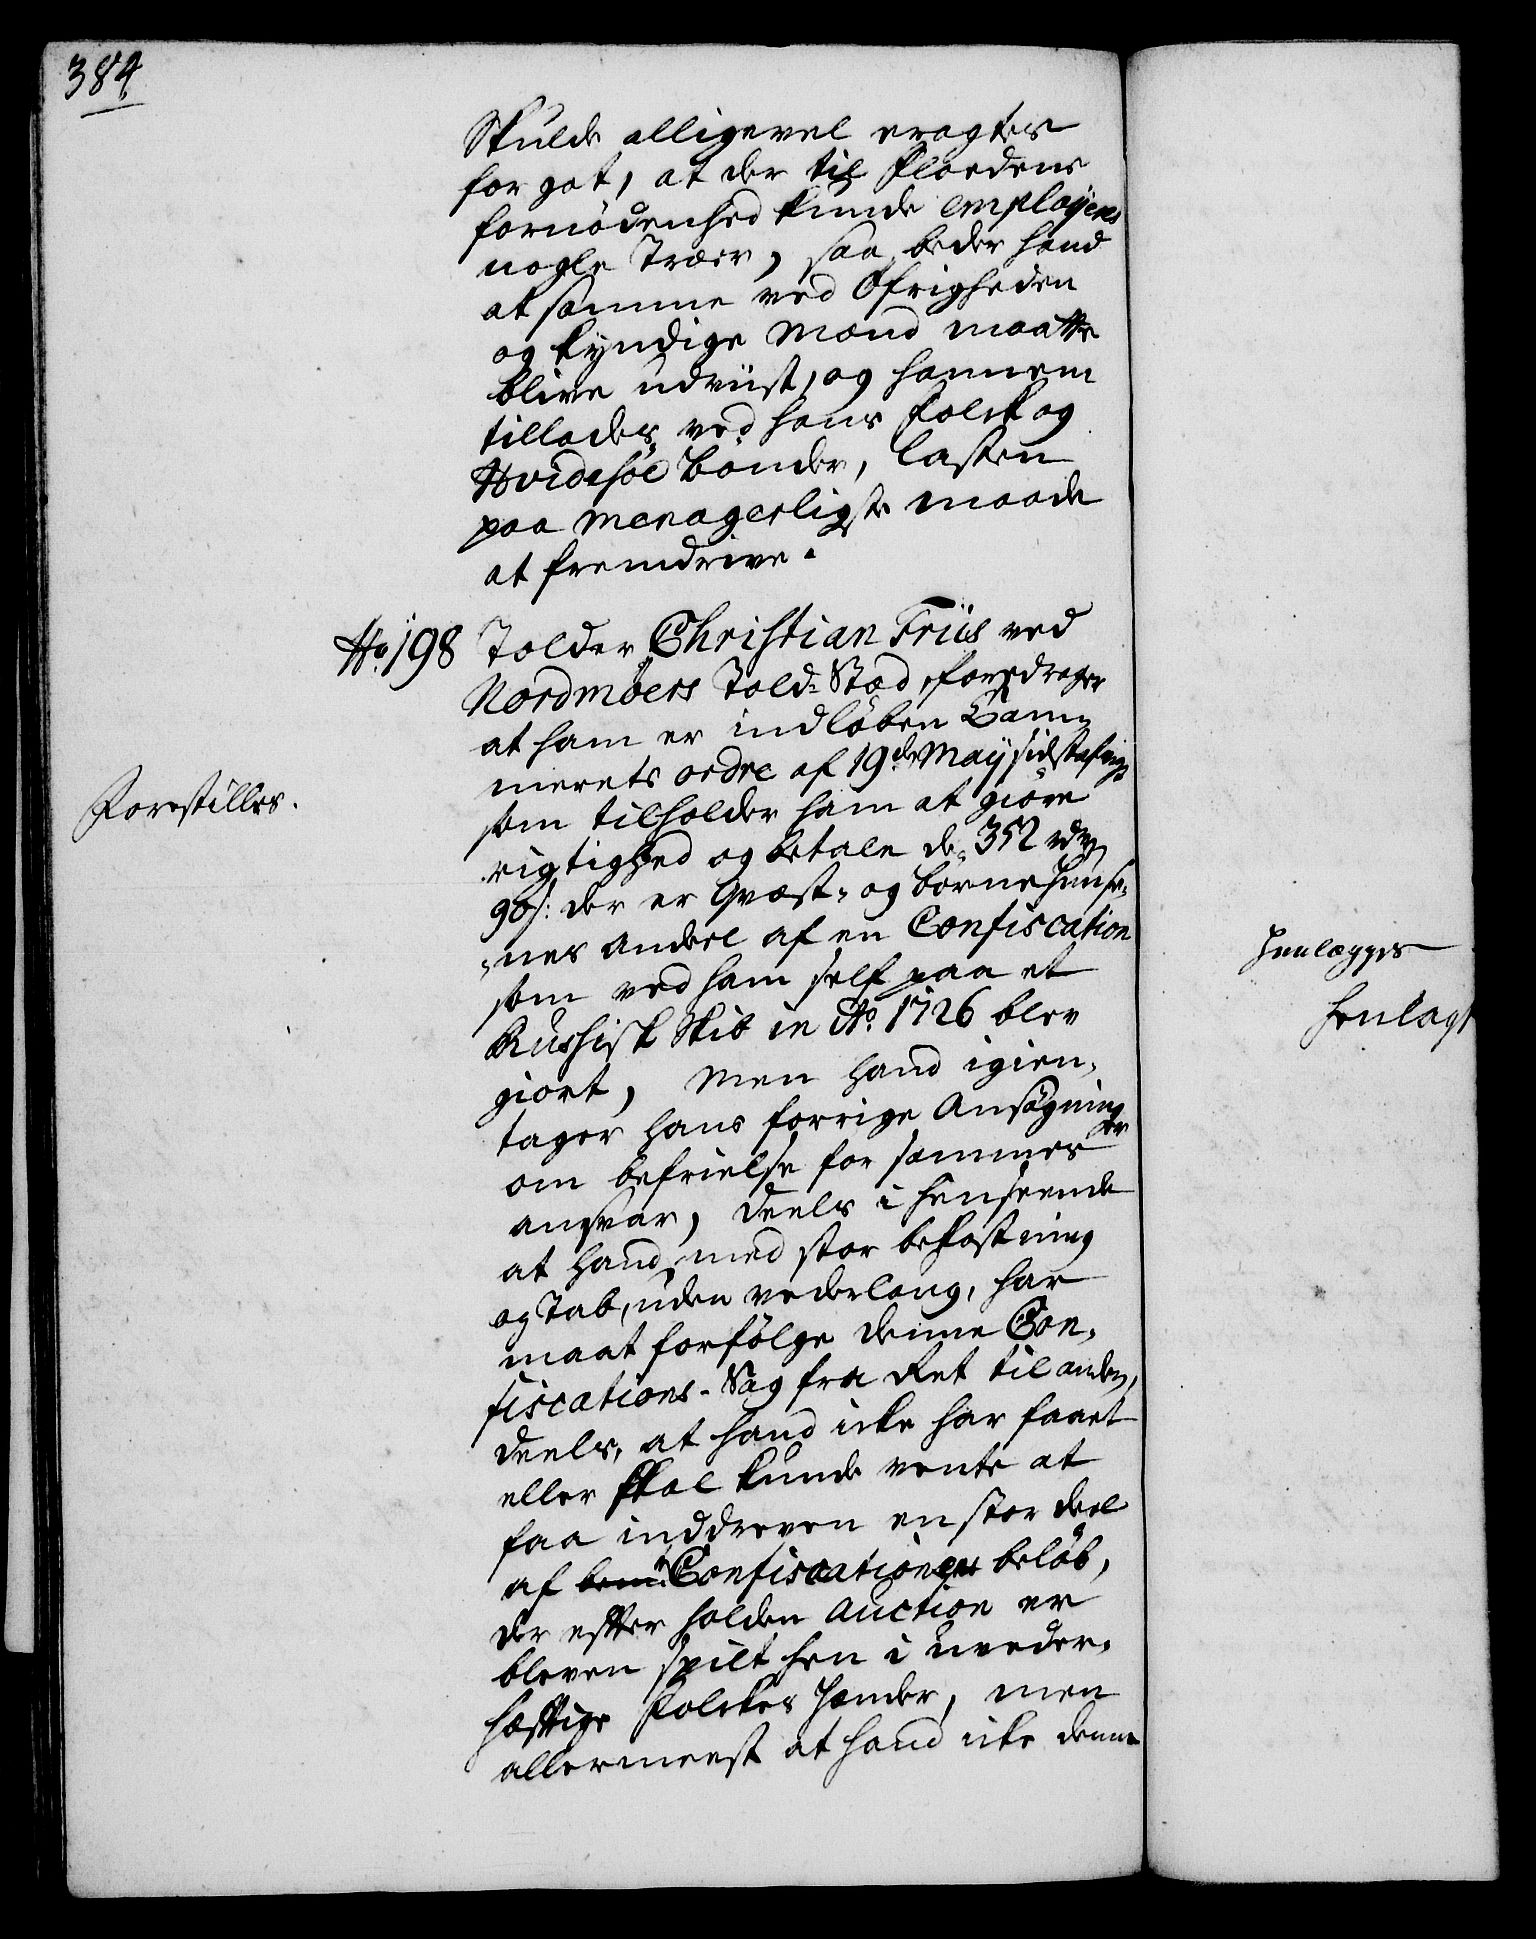 384
Skulde alligevel eragtes
for got, at der til Flodens
fornödenhed kunde employeres
nogle Træer, saa beder hand
at samme ved Öfrigheden
og kyndige Mænd maatte
blive udviist, og hannem
tillades ved hans folck og
Hvidesöe bönder, lasten
paa menagerligste maade
at fremdrive.
No. 198 Tolder Christian Friis ved
Nordmöers Told-Stæd, foredrager
at ham er indlöben Cam-
merets ordre af 19de Maij sidstafvigt
som tilholder ham at giöre
Forestilles.
rigtighed og betale de 352 rdr
90 s: der er Qvæst- og börnehuuse-
nes andeel af en Confiscation
Henlægges
som ved ham self paa et
Henlagt
Russisk Skib in Ao. 1726 blev
giort, Men hand igien-
tager hans forrige Ansögninger
om befrielse for sammes
ansvar, deels i henseende
at hand med stor bekostning
og Tab, uden vederlaug, har
maat forfölge denne Con-
fiscations-Sag fra Ret til anden,
deels, at hand icke har faaet
eller skal kunde vente at
faa inddreven en stor deel
af bem.te Confiscationens belöb,
der efter holden Auction er
bleven spilt hen i uveder-
hæftige folckes hænder, men
allermeest at hand icke denne